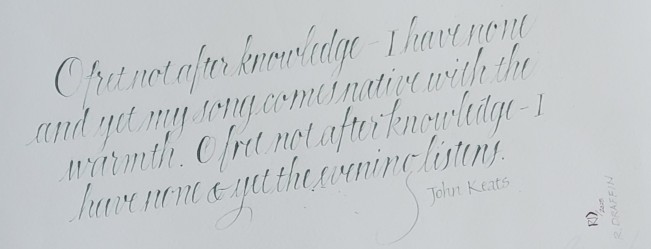 O fret not after knowledge - I have none
and yet my song comes native with the
warmth. O fret not after knowledge - I
have none & yet the evening listens.
John Keats
R. DRAFFIN